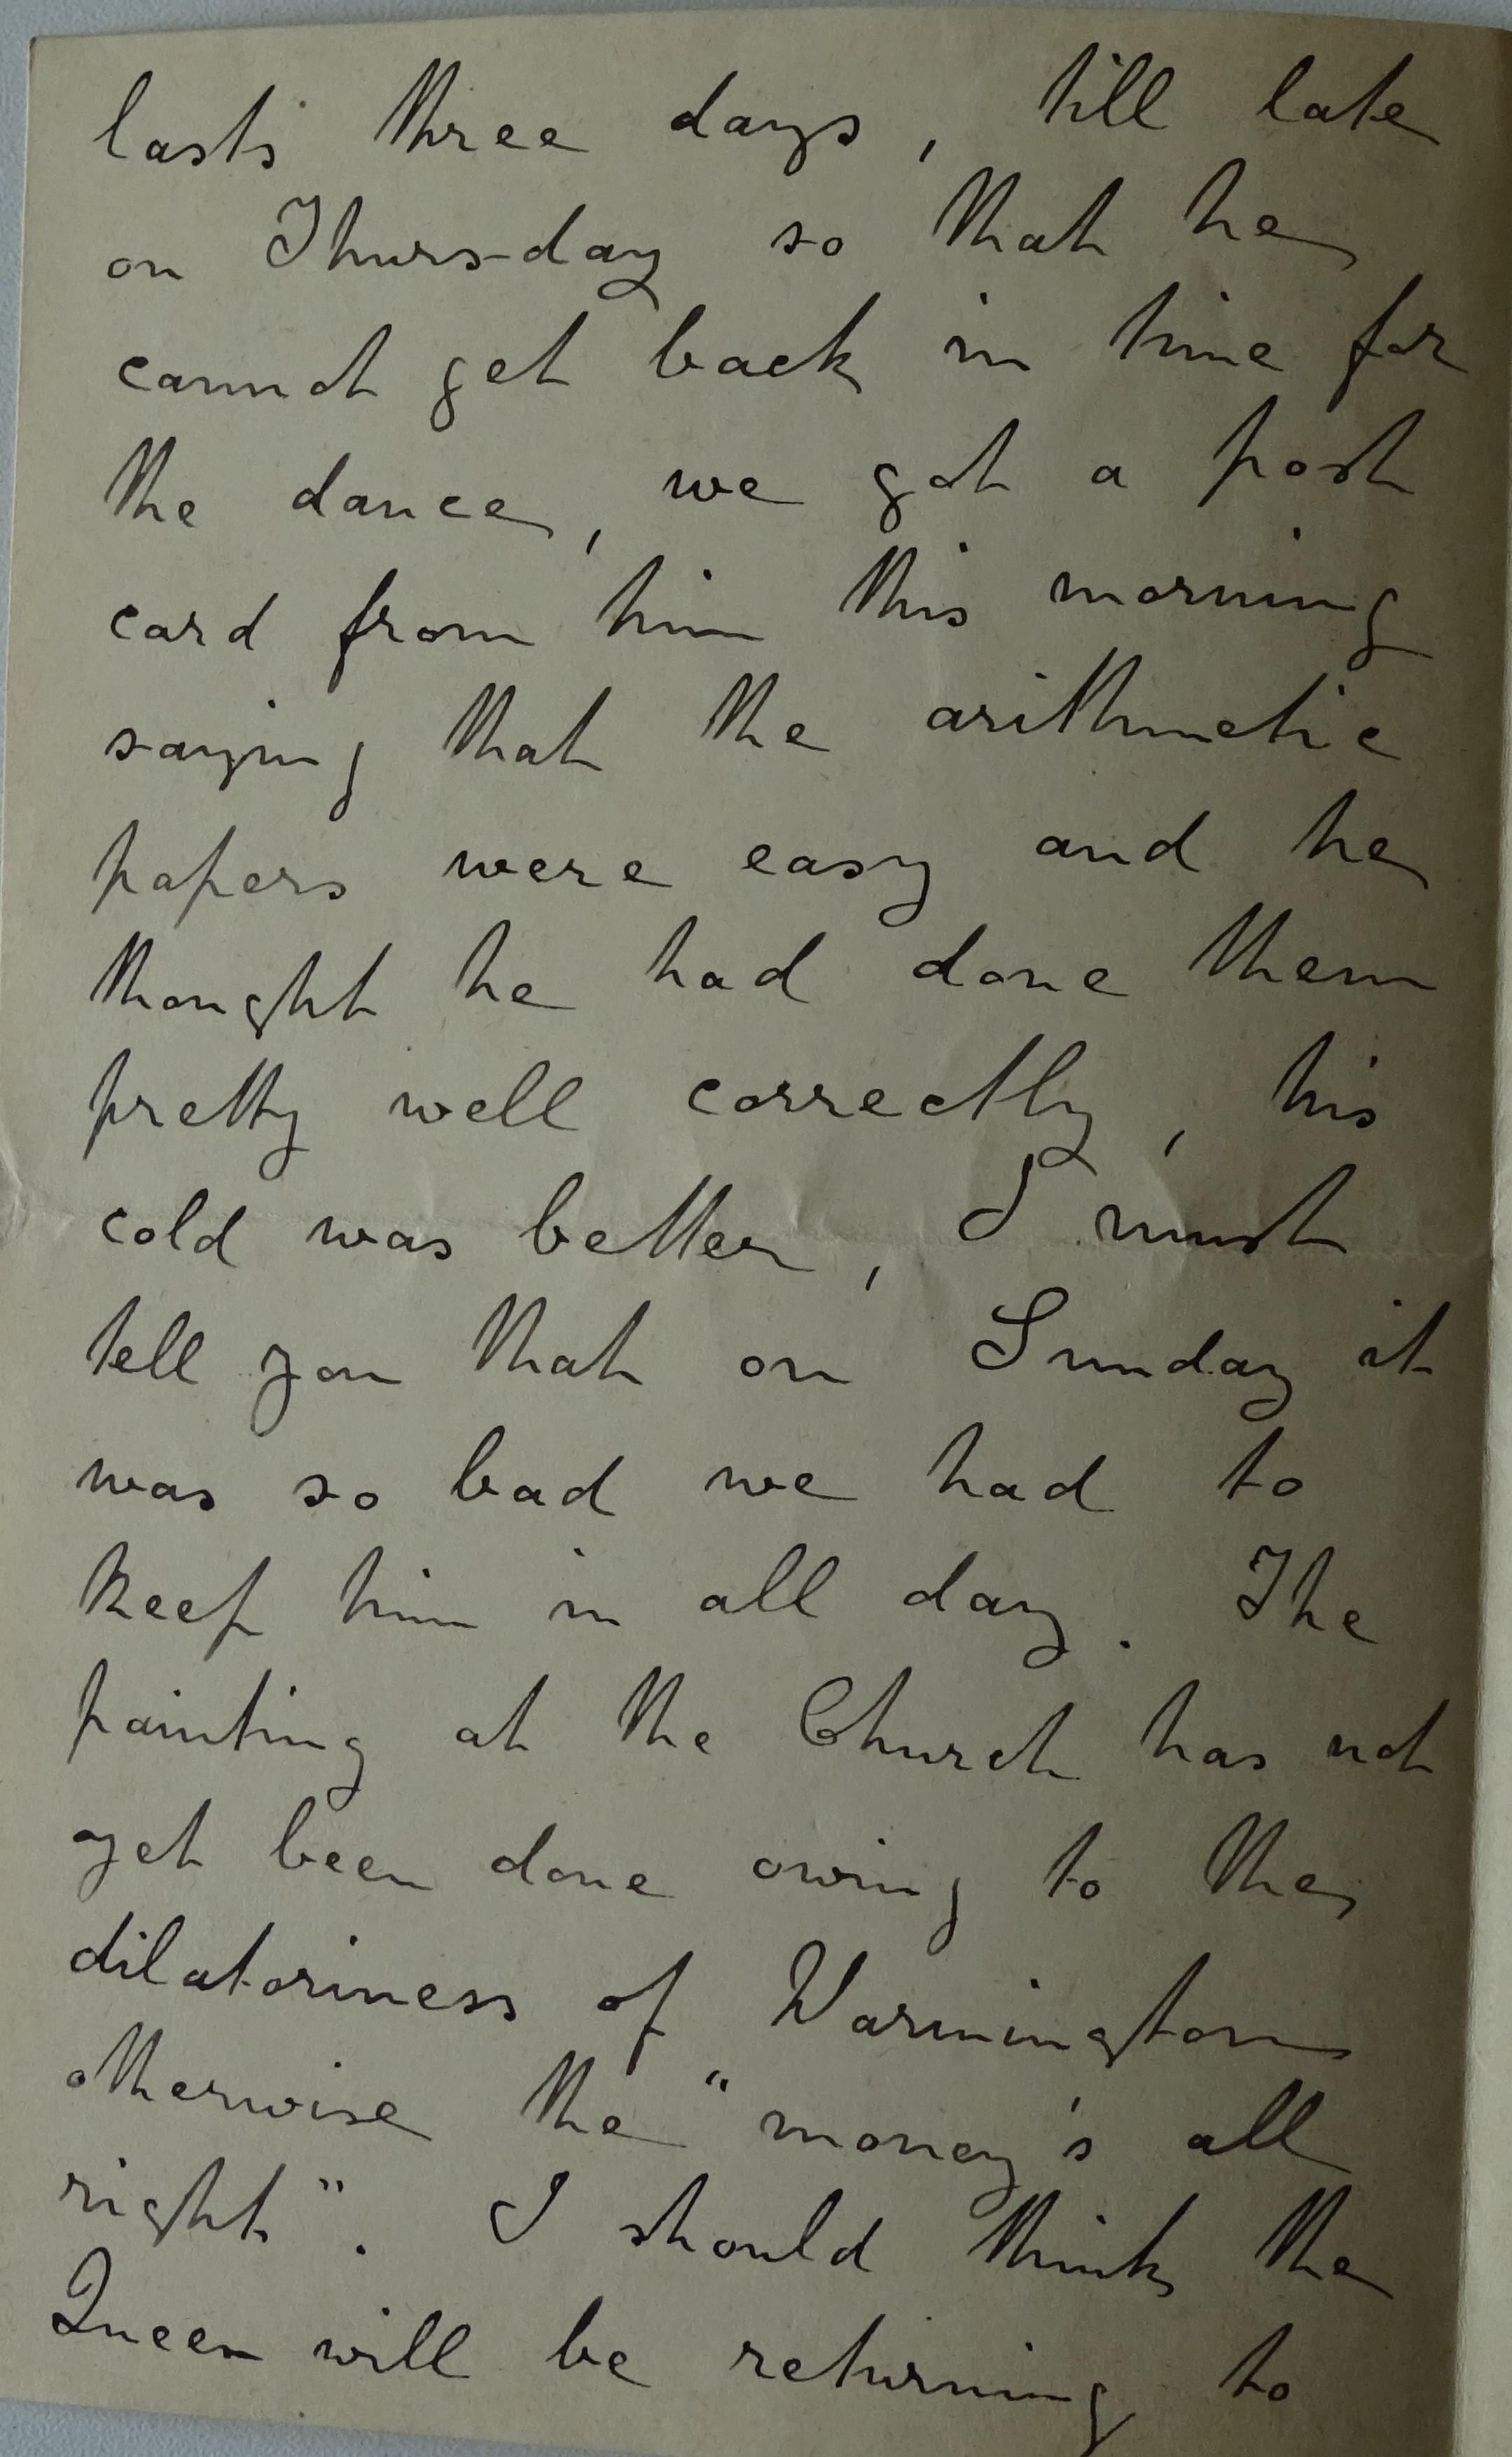 lasts three days, till late
on Thursday so that he
cannot get back in time for
the dance, we got a post
card from him this morning
saying that the arithmetic
papers were easy and he
thought he had done them
pretty well correctly, his
cold was better, I must
tell you that on Sunday it
was so bad we had to
keep him in all day. The
painting at the Church has not
yet been done owing to the
dilatoriness of Warmington
otherwise the "money's all
right". I should think the
Queen will be returning to